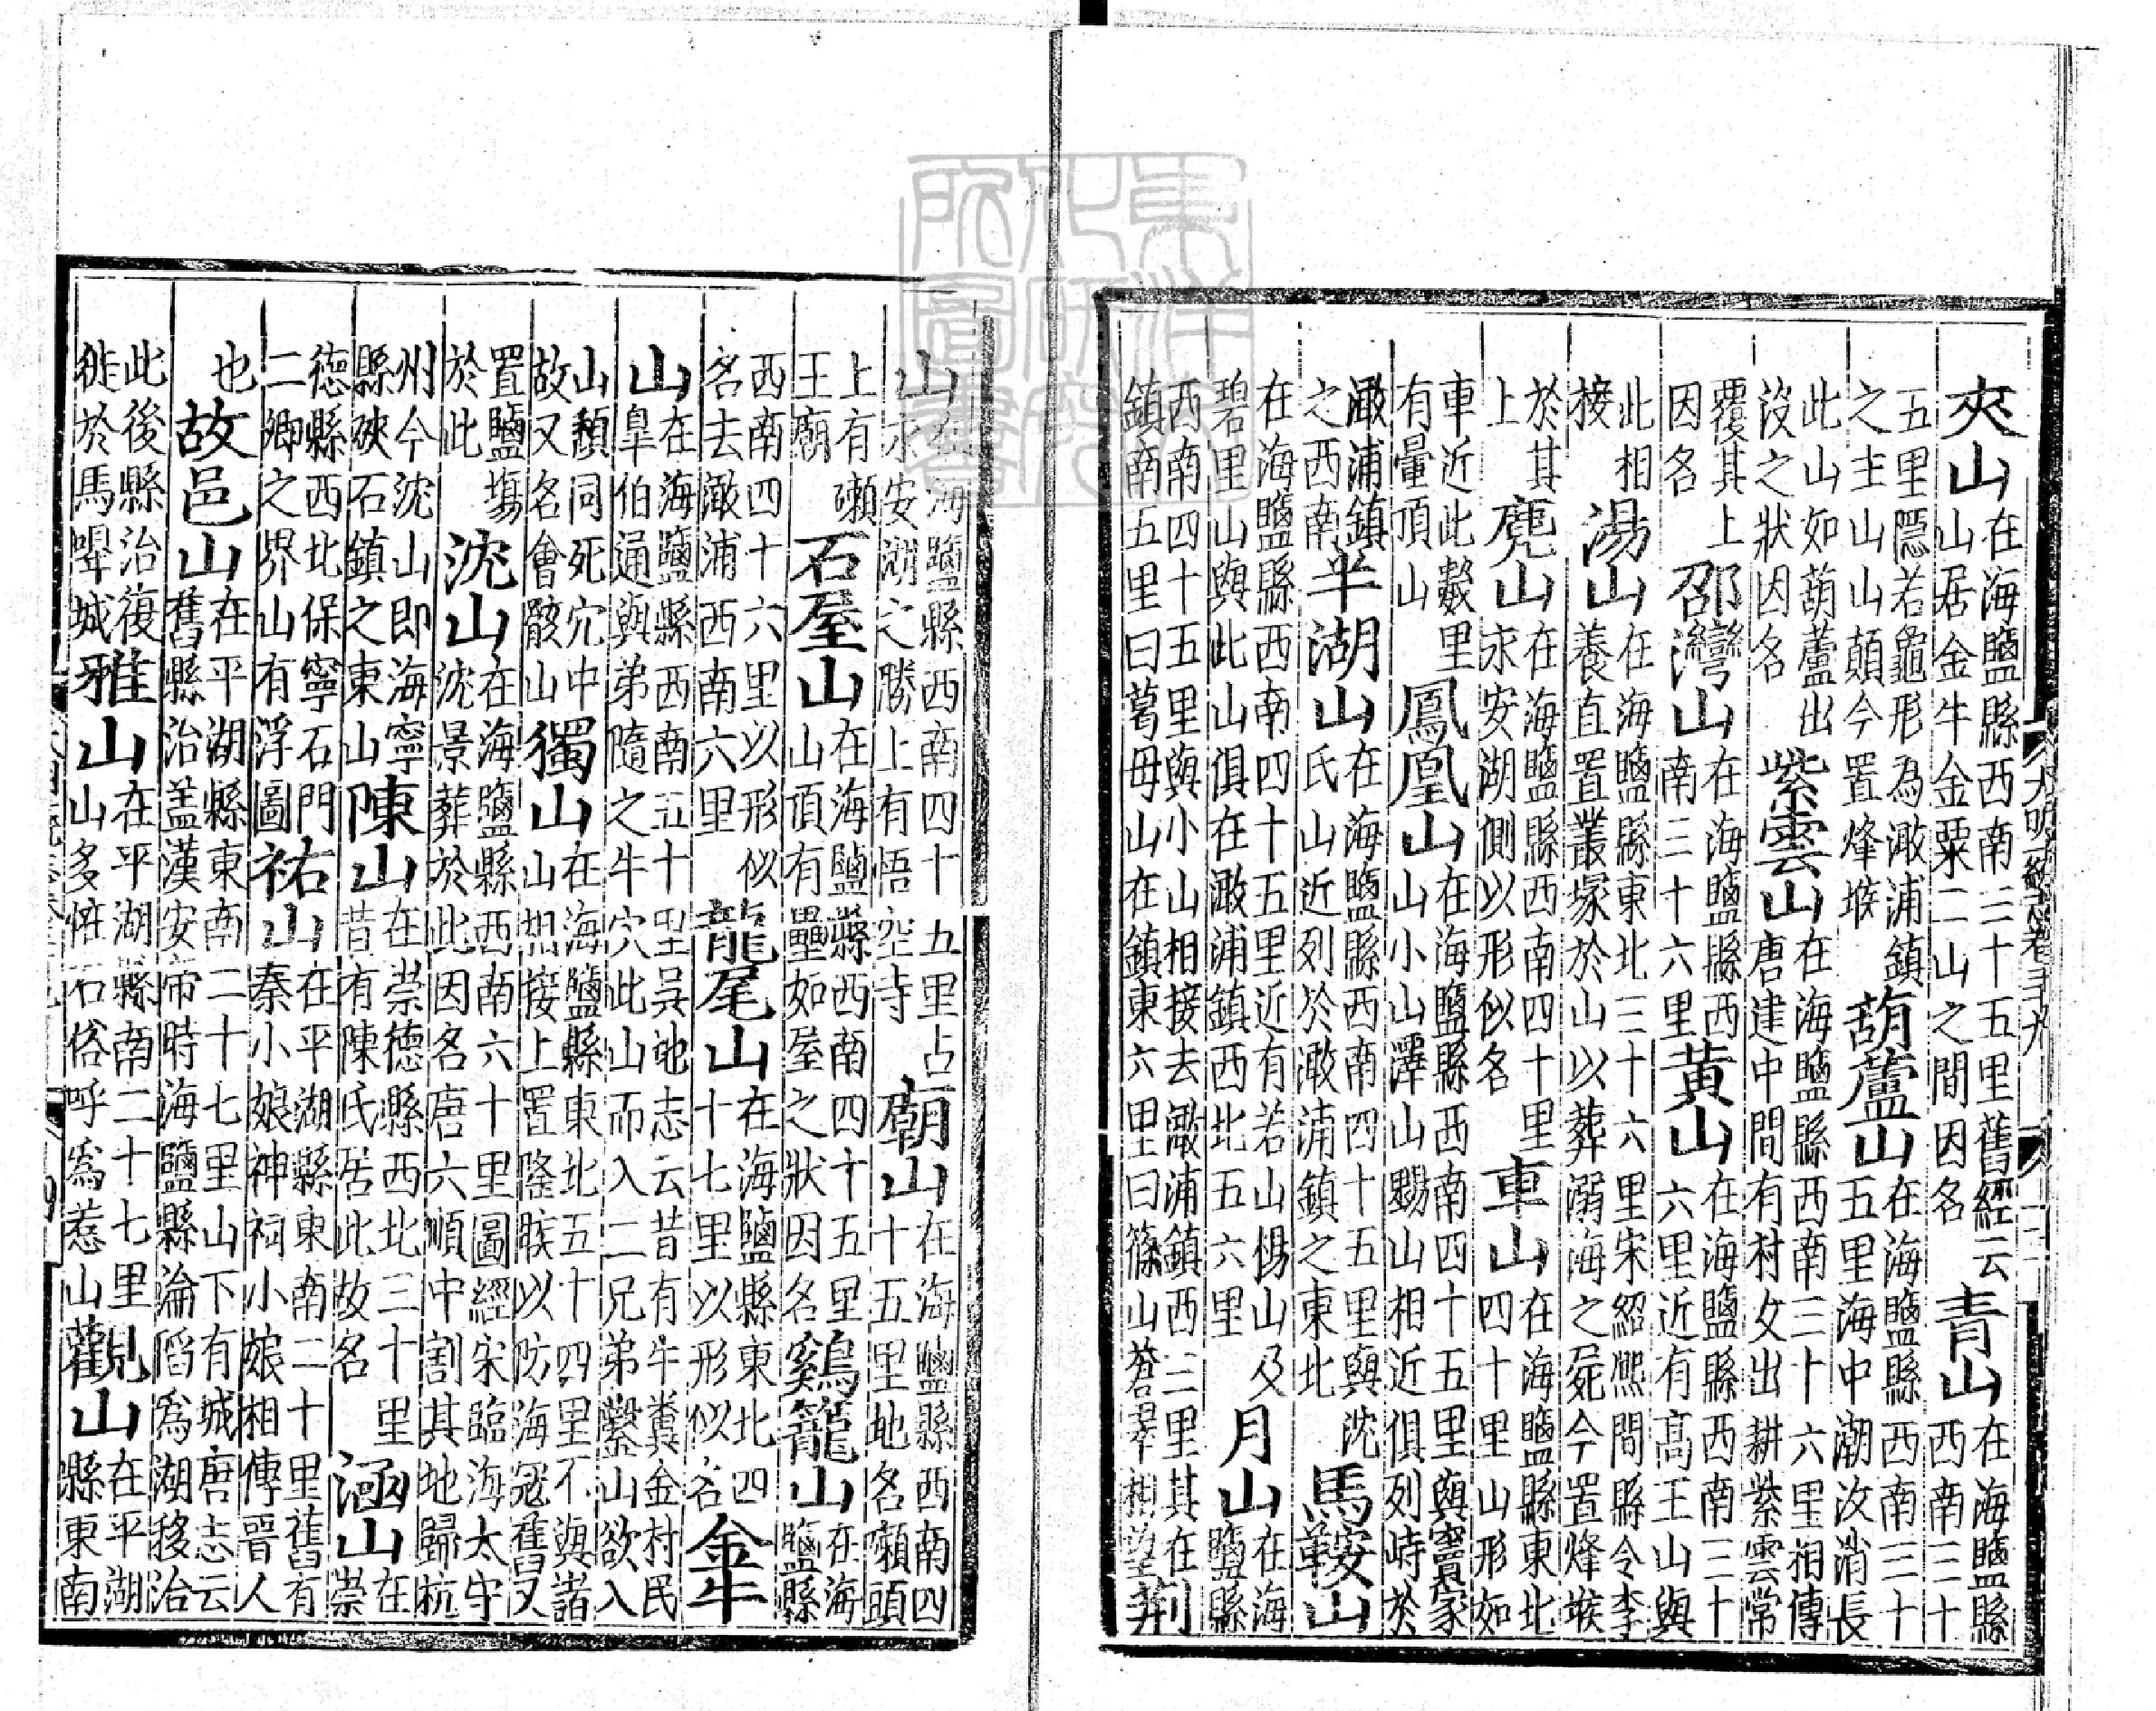 夾山在海鹽縣西南三十五里舊經云
山居金牛金粟二山之間因名
青山在海鹽縣
西南三十
五里隱若龜形為澉浦鎮
之主山山顛今置烽堠
葫蘆山在海鹽縣西南三十
五里海中潮汝消長
此山如葫蘆出
沒之狀因名
紫雲山在海鹽縣西南三十六里相傳
唐建中間有村女出耕紫雲常
覆其上
因名
邵灣山在海鹽縣西
南三十六里
黃山在海鹽縣西南三十
六里近有高王山與
此相
接
湯山在海鹽縣東北三十六里宋紹熙間縣令李
養直置叢塚於山以葬溺海之屍今置烽堠
於其
上
麂山在海鹽縣西南四十里
永安湖側以形似名
車山在海鹽縣東北
四十里山形如
車近此數里
有暈頂山
鳳凰山在海鹽縣西南四十五里與竇家
山小山澤山山相近俱列峙於
澉浦鎮
之西南
羊湖山在海鹽縣西南四十五里與沈
氏山近列於澉浦鎮之東北
馬鞍山
在海鹽縣西南四十五里近有若山楊山及
碧里山與此山俱在澉浦鎮西北五六里
月山在海
鹽縣
西南四十五里與小山相接去澉浦鎮西三里其在
鎮南五里曰葛母山在鎮東六里曰篠山蒼翠相望
荆
大明一統志卷三十九
山在海鹽縣西南四十五里占
永安湖之勝上有悟空寺
廟山在海鹽縣西南四
十五里地名嬾頭
上有嬾
王廟
石屋山在海鹽縣西南四十五里
山頂有壘如屋之狀因名
鷄籠山在海
鹽縣
西南四十六里以形似
名去澉浦西南六里
龍尾山在海鹽縣東北四
十七里以形似名
金牛
山在海鹽縣西南五十里吳地志云昔有牛糞金村民
皐伯通與弟隨之牛穴此山而入二兄弟鑿山欲入
山頹同死穴中
故又名會骸山
獨山在海鹽縣東北五十四里不與諸
山相接上置堠以防海冦舊又
置鹽塲
於此
沈山在海鹽縣西南六十里圖經宋臨海太守
沈景葬於此因名唐六順中割其地歸杭
州今沈山即海寧
縣硤石鎮之東山
陳山在崇德縣西北三十里
昔有陳氏居此故名
涵山在
崇
德縣西北保寧石門
二鄉之界山有浮圖
祐山在平湖縣東南二十里舊有
秦小娘神祠小娘相傳晉人
也
故邑山在平湖縣東南二十七里山下有城唐志云
舊縣治盖漢安帝時海鹽縣淪䧟爲湖移治
此後縣治復
徙於馬嘷城
雅山在平湖縣南二十七里
山多怪石俗呼爲惹山
觀山在平湖
縣東南